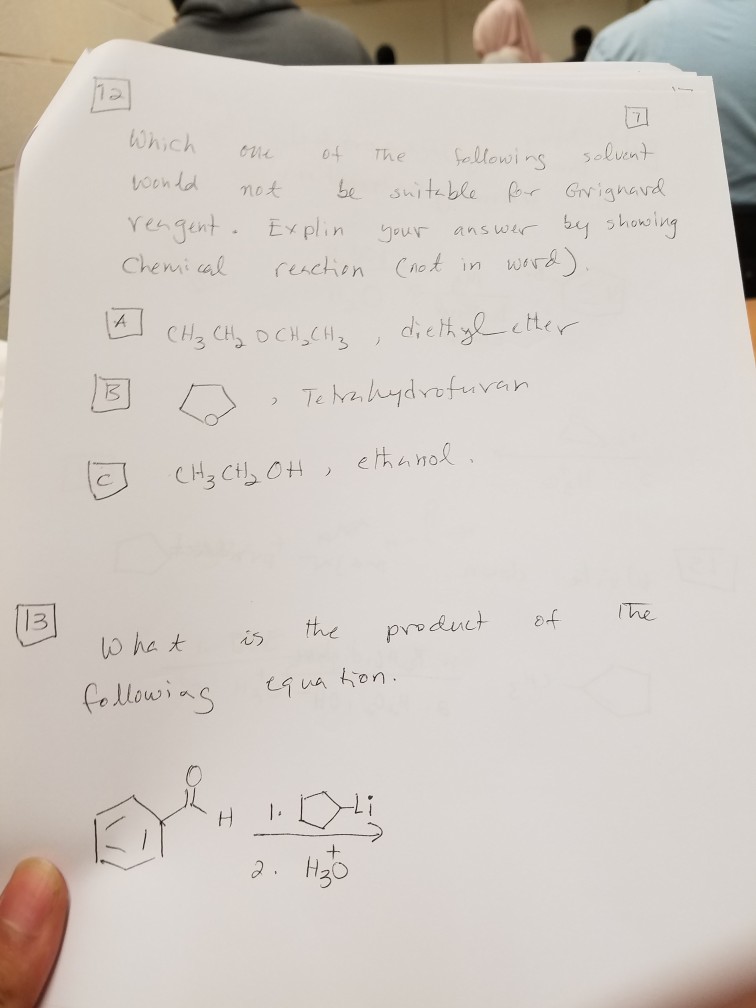 12
7
Which one of The following solvent
would not be suitable for Grignard
reagent. Explin your answer by showing
Chemical reaction (not in word).
A CH3 CH2 O CH2CH3 , diethyl ether
B O , Tetrahydrofuran
C CH3 CH2 OH , ethanol .
13 What is the product of The
following equation.
O
H 1. Li
2. H3O+